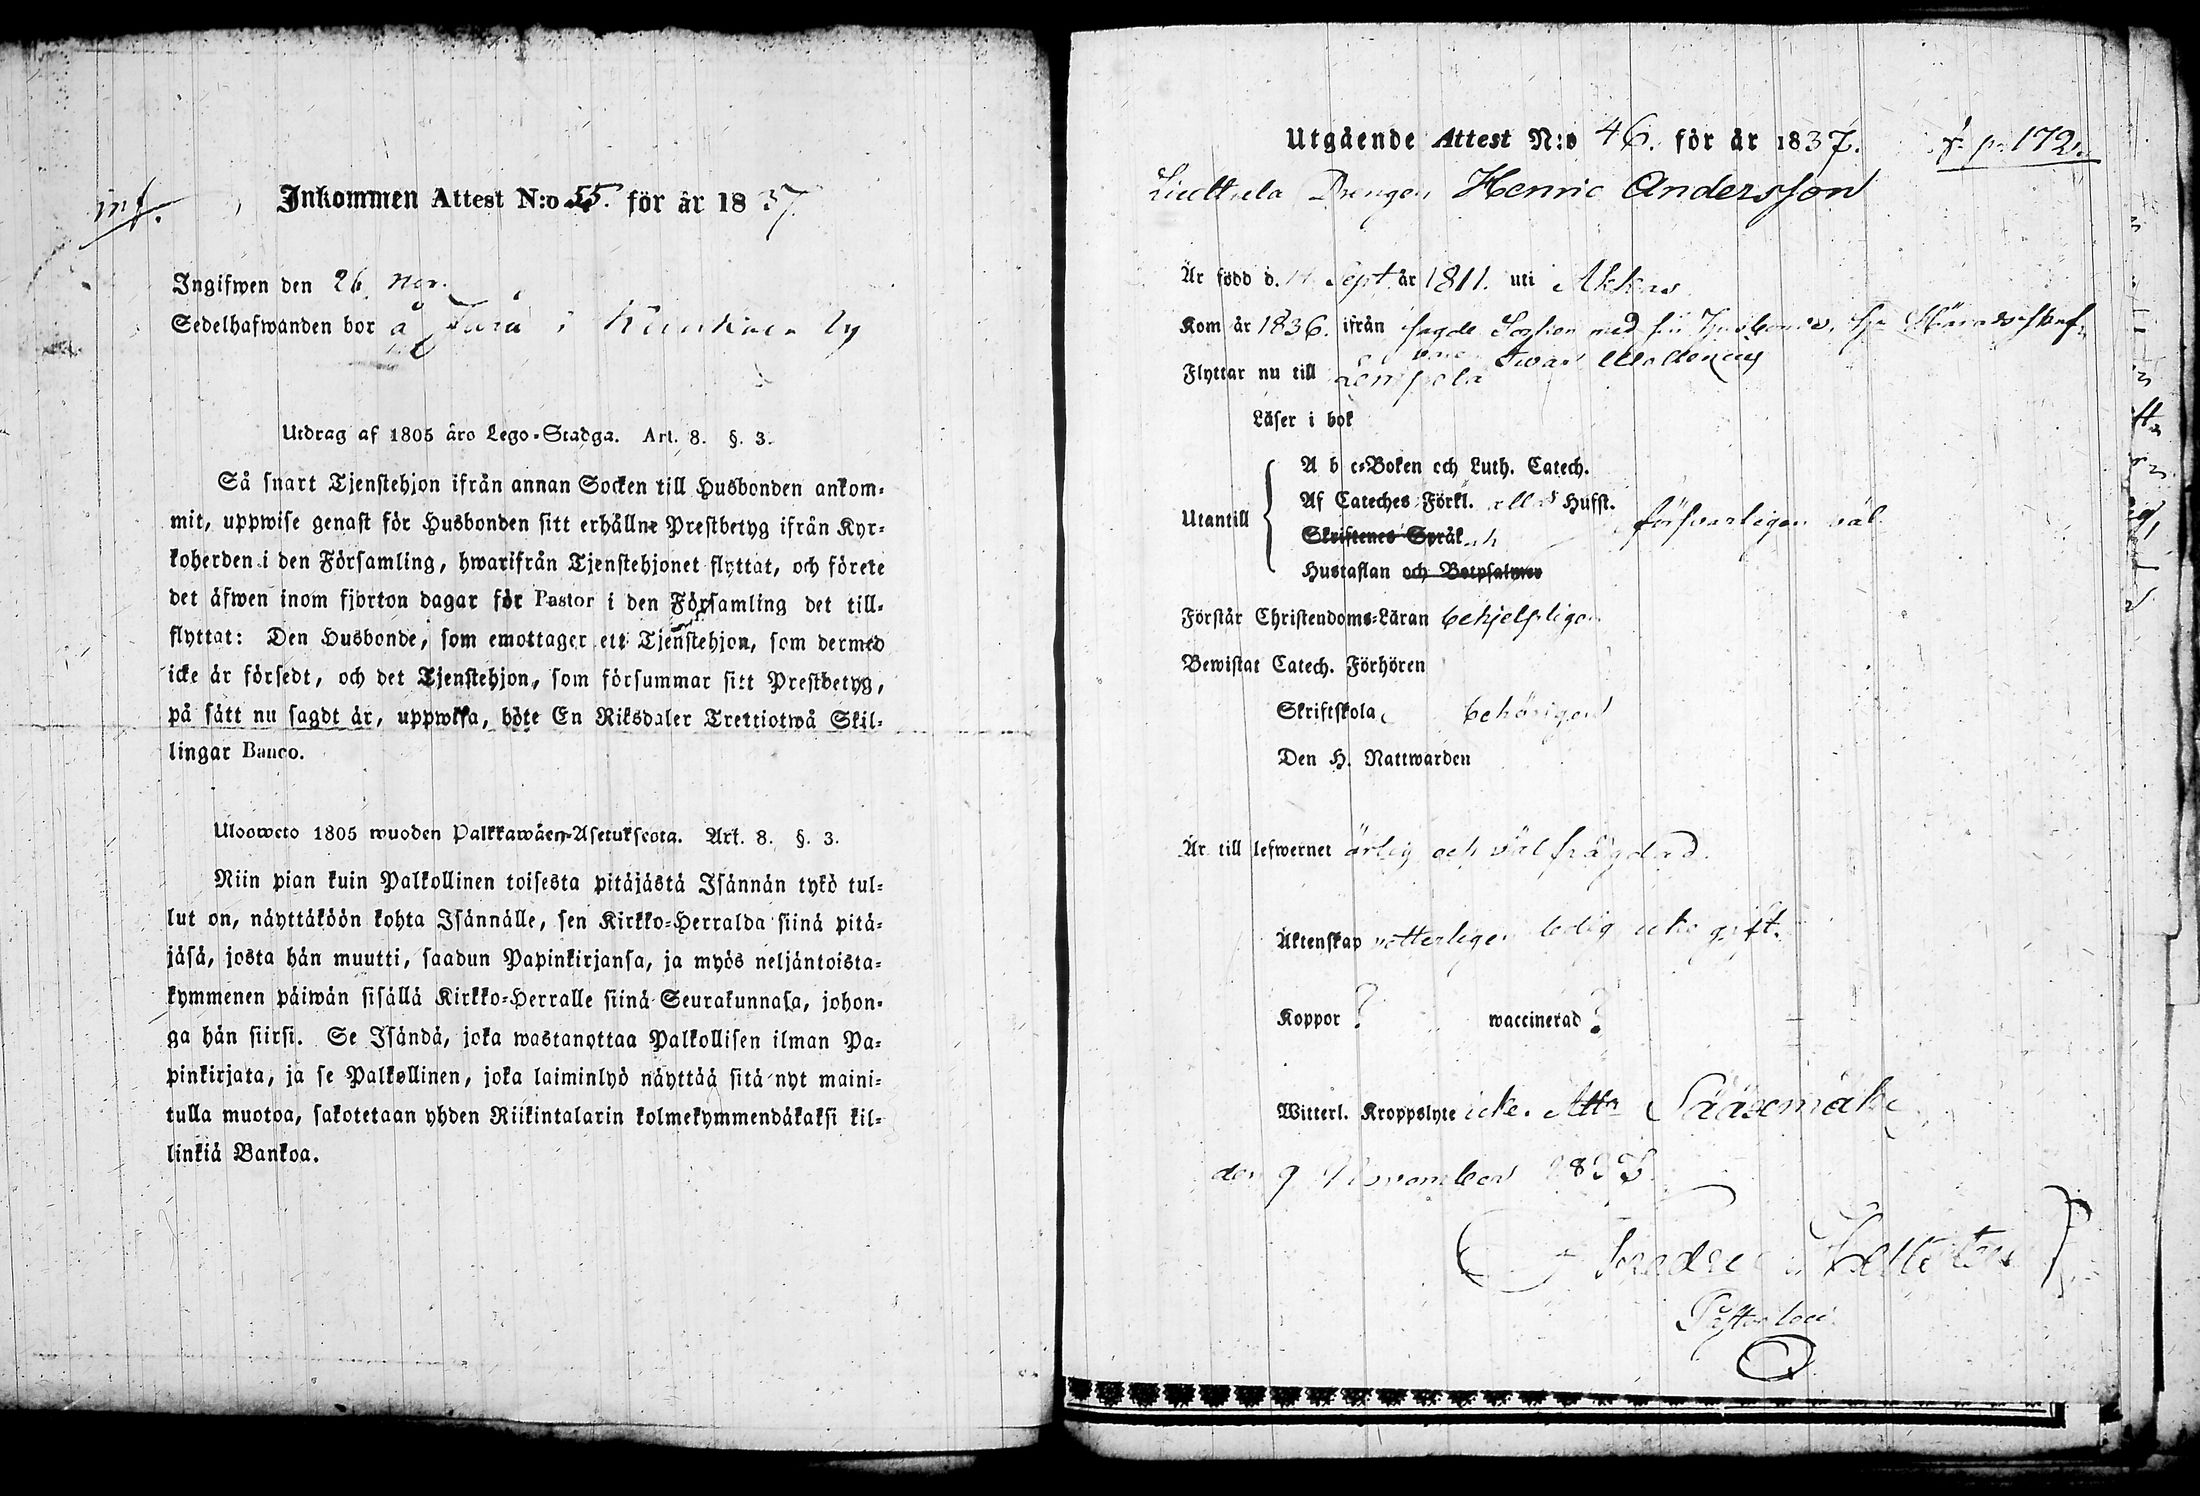 inf.
Inkommen Attest N:o 55. för år 1837
Ingifwen den 26 Nov.
Sedelhafwanden bor å Jura i by
Utdrag af 1805 års Lego-Stadga. Art. 8. §. 3.
Så snart Tjenstehjon ifrån annan Socken till Husbonden ankom-
mit, uppwise genast för Husbonden sitt erhållne Prestbetyg ifrån Kyr-
koherden i den Församling, hwarifrån Tjenstehjonet flyttat, och förete
det äfwen inom fjorton dagar för Pastor i den Församling det till-
flyttat: Den Husbonde, som emottager ett Tjenstehjon, som dermed
icke är försedt, och det Tjenstehjon, som försummar sitt Prestbetyg,
på sätt nu sagdt är, uppwisa, böte En Riksdaler Trettiotwå Skil-
lingar Banco.
Uloswcto 1805 wuoden Palkkawäen-Asetuksesta. Art. 8. §. 3.
Niin pian kuin Palkollinen toisesta pitäjästä Isännän tykö tul-
lut on, näyttäköön kohta Isännälle, sen Kirkko-Herralda siinä pitä-
jäsä, josta hän muutti, saadun Papinkirjansa, ja myös neljäntoista-
kymmenen päiwän sisällä Kirkko-Herralle siinä Seurakunnasa, johon-
ga hän siirsi. Se Isändä, joka wastanottaa Palkollisen ilman Pa-
pinkirjata, ja se Palkollinen, joka laiminlyö näyttää sitä nyt maini-
tulla muotoa, sakotetaan yhden Riikintalarin kolmekymmendäkaksi kil-
linkiä Bankoa.
Utgående Attest N:o 46. för år 1837. p. 172.
Drengen Henric Andersson
Är född d. Sept. år 1811. uti Akkas
Kom år 1836. ifrån sagde Socken med sin Husbonde,
Flyttar nu till Lempola
Läser i bok
Utantill
A b c-Boken och Luth. Catech.
Af Cateches Förkl. Husst.
Skriftenes Språk försvarligen väl
Hustaflan och Botpsalmer
Förstår Christendoms-Läran behjelpligen
Bewistat Catech. Förhören
Skriftskola behörigen
Den H. Nattwarden
Är till lefwernet ärlig och väl frägdad.
Äktenskap wetterligen ledig icke gift.
Koppor ? waccinerad ?
Witterl. Kroppslyte icke. Atts. Sääxmäki
den 9 November 1837.
Fredric